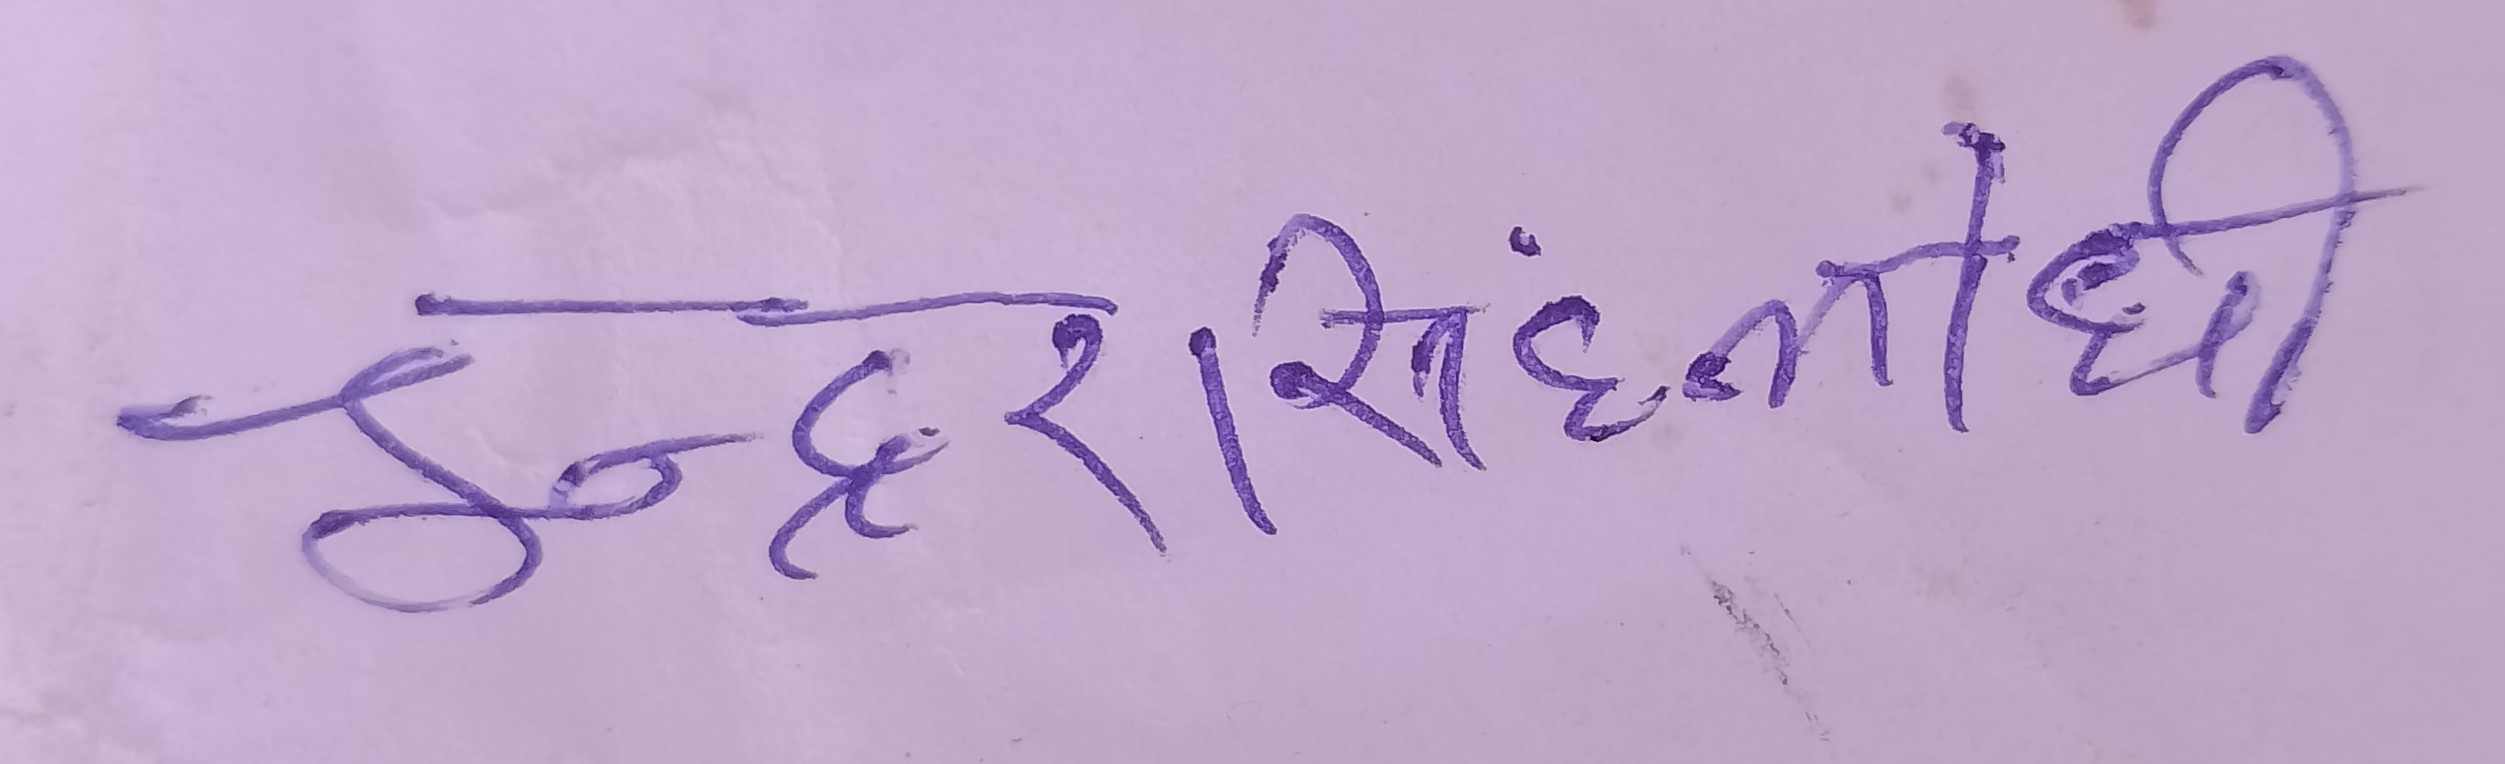 इन्दर सिंह लोधी